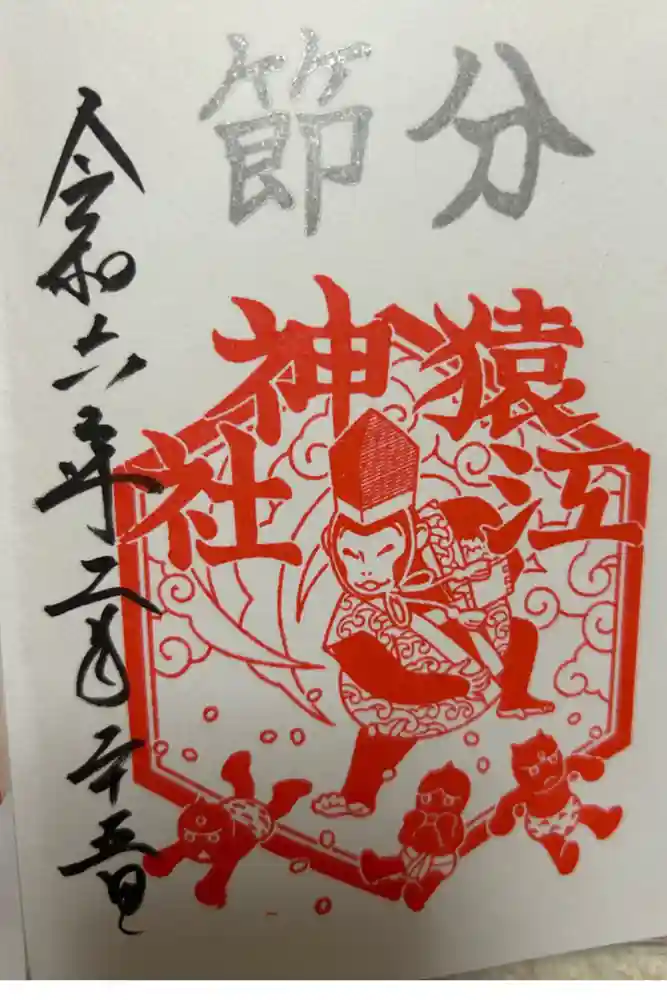 節分
猿江
神社
令和六年二月二十五日